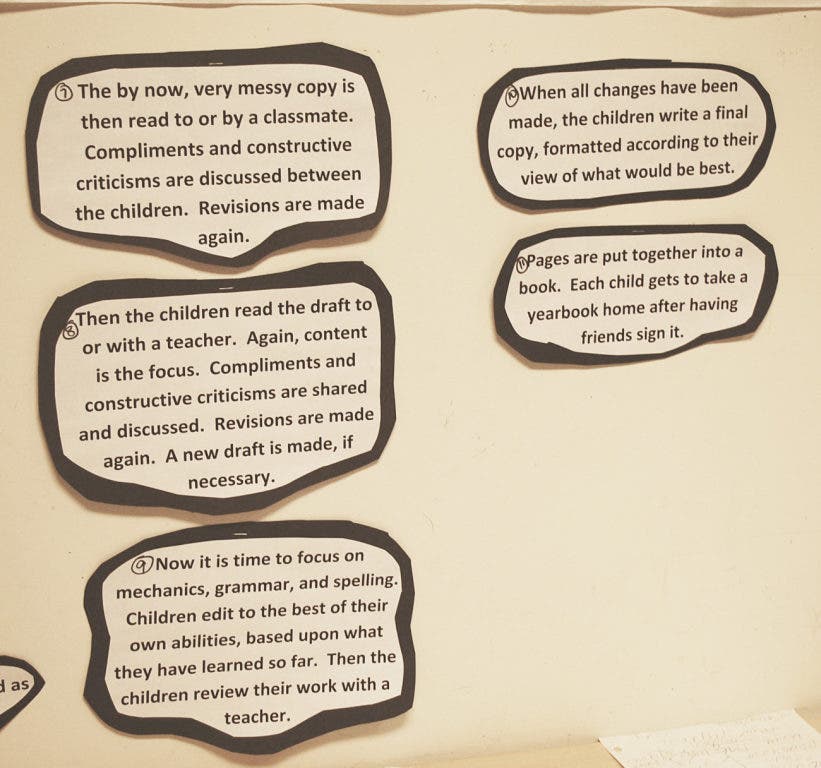 ⑦ The by now, very messy copy is
then read to or by a classmate.
Compliments and constructive
criticisms are discussed between
the children. Revisions are made
again.
⑧ Then the children read the draft to
or with a teacher. Again, content
is the focus. Compliments and
constructive criticisms are shared
and discussed. Revisions are made
again. A new draft is made, if
necessary.
⑨ Now it is time to focus on
mechanics, grammar, and spelling.
Children edit to the best of their
own abilities, based upon what
they have learned so far. Then the
children review their work with a
teacher.
⑩ When all changes have been
made, the children write a final
copy, formatted according to their
view of what would be best.
⑪ Pages are put together into a
book. Each child gets to take a
yearbook home after having
friends sign it.
as